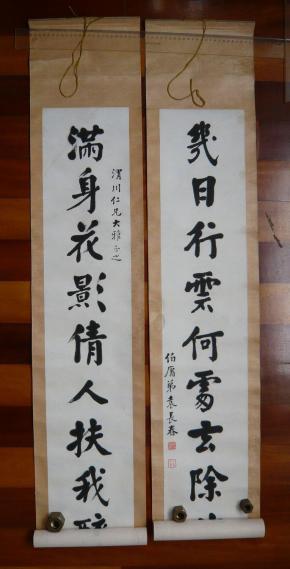 幾日行雲何處去除
伯庸弟袁長春
渭川仁兄大雅正之
滿身花影倩人扶我醉